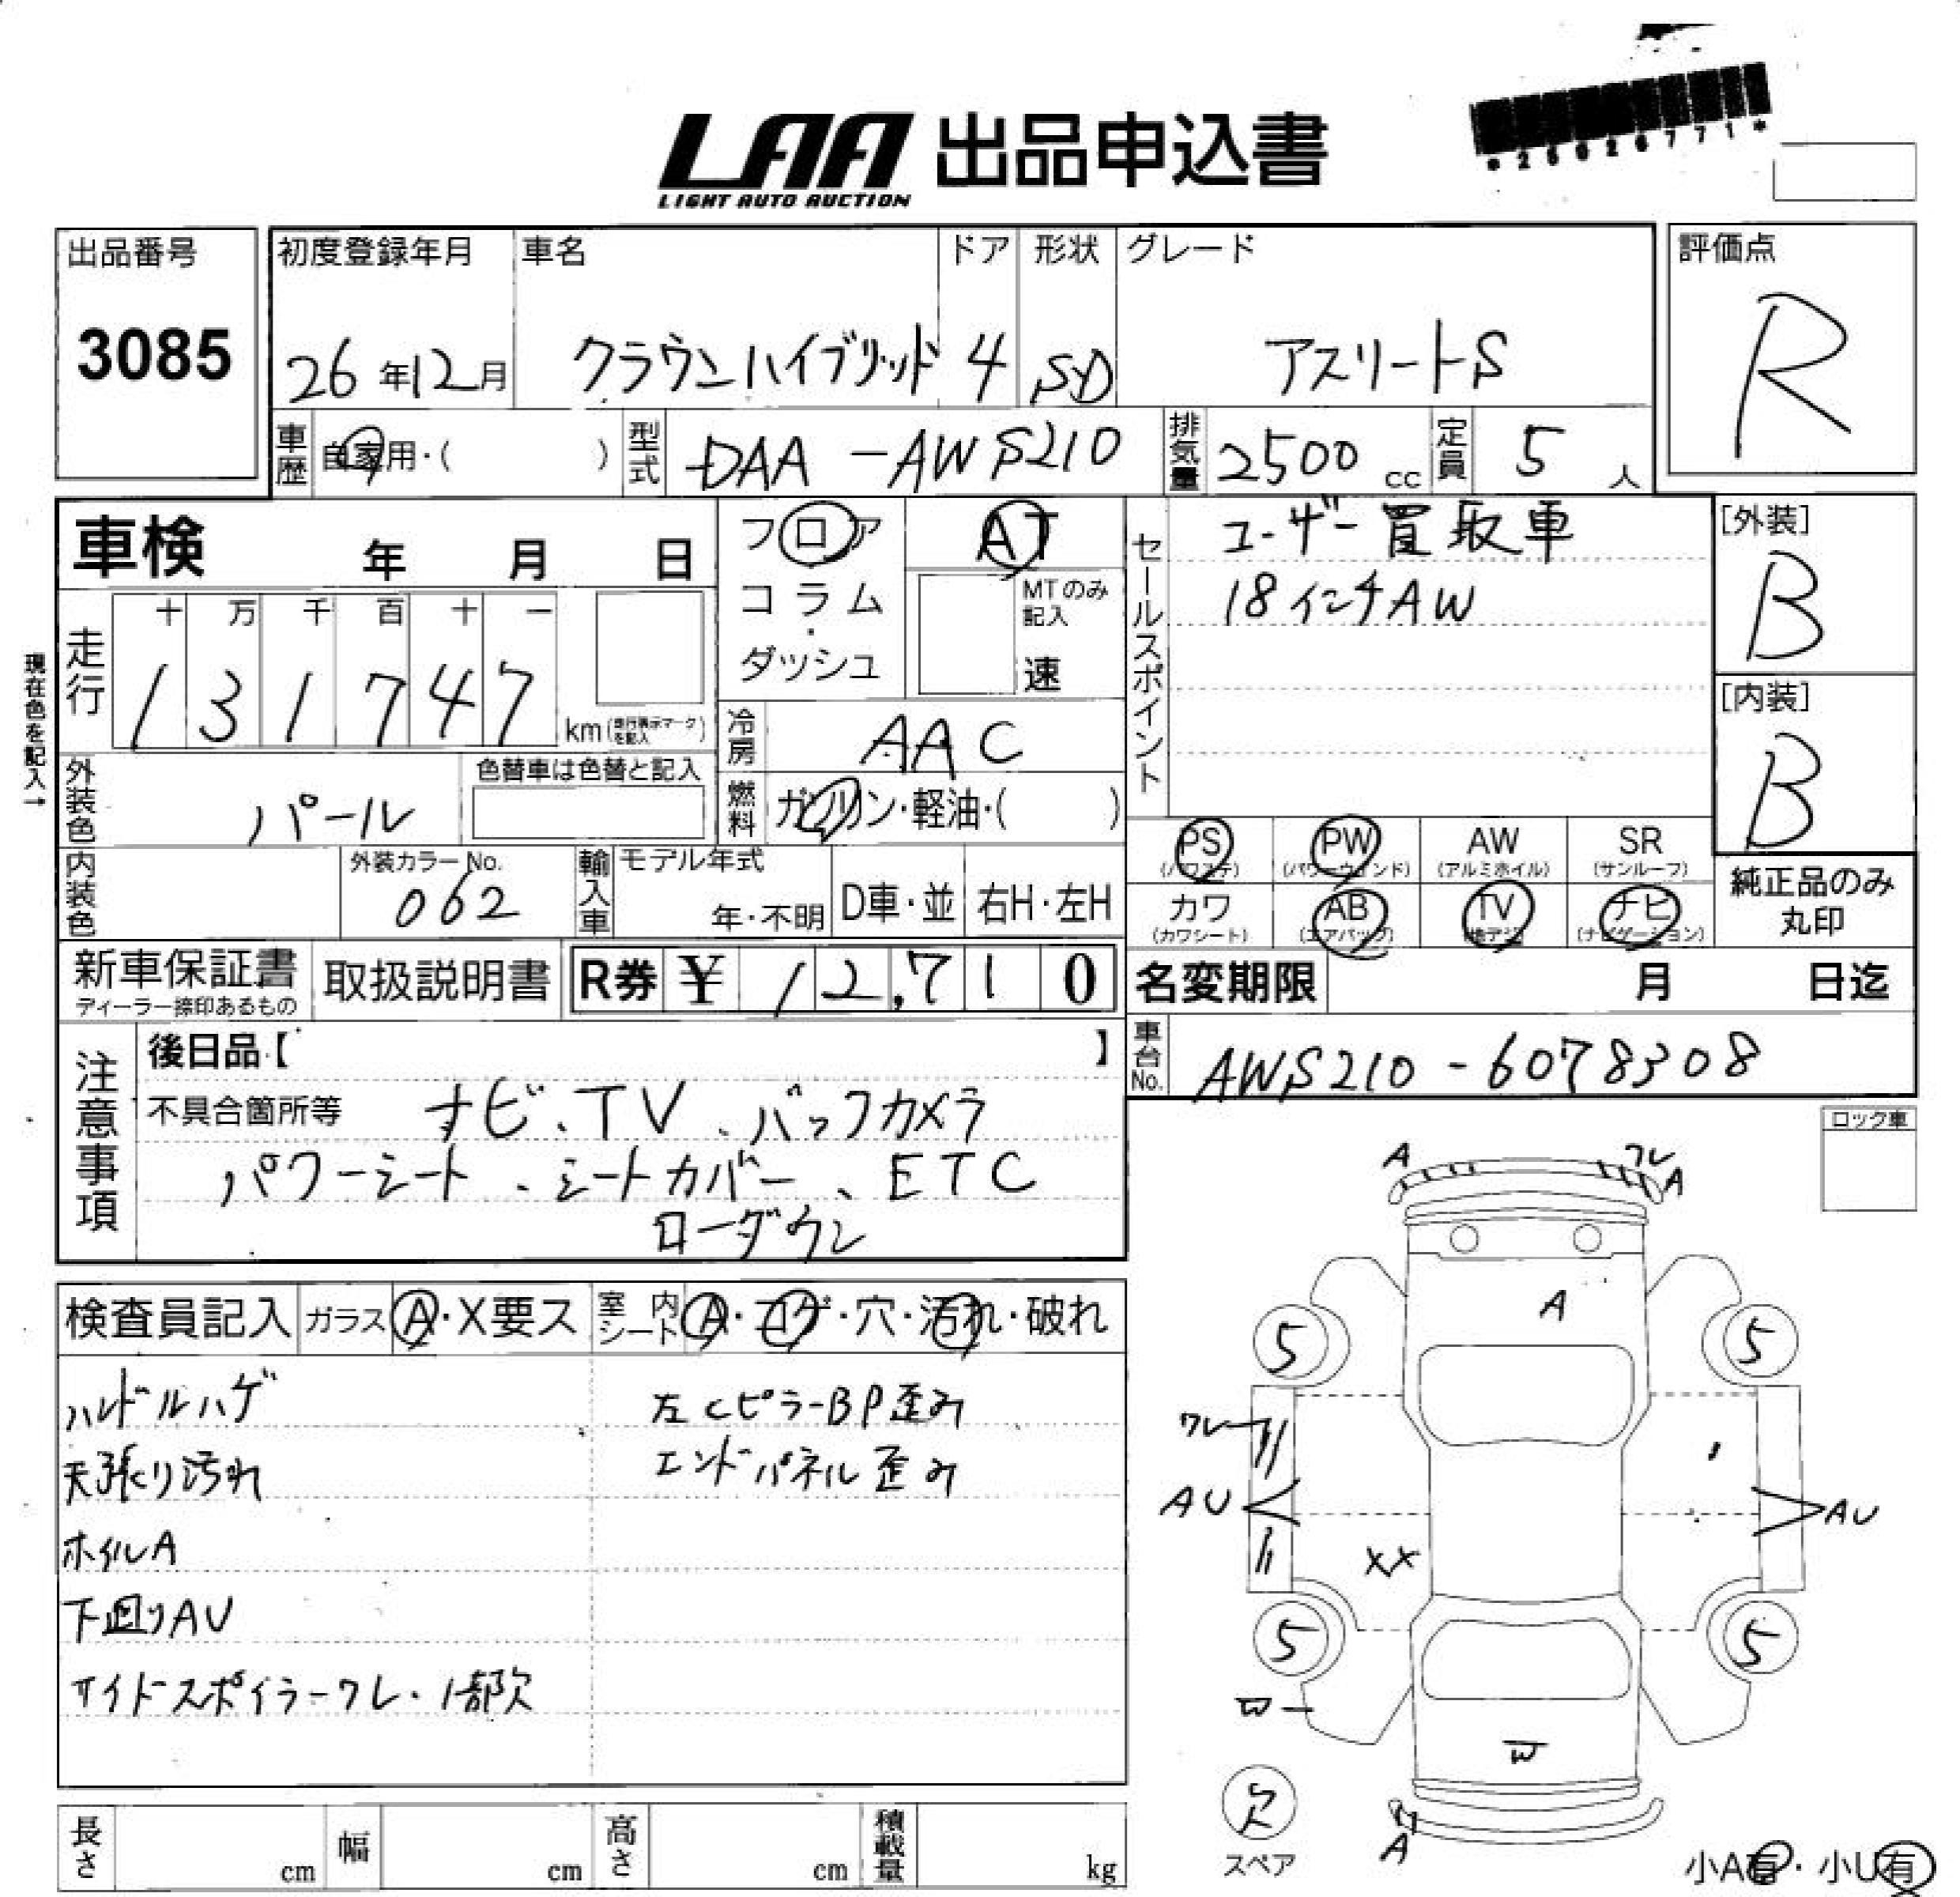 LAA 出品申込書
LIGHT AUTO AUCTION
*25026771*
出品番号
3085
初度登録年月 車名 ドア 形状 グレード
26年12月 クラウンハイブリッド 4 SD アスリートS
評価点
R
車歴 自家用・( ) 型式 DAA-AWS210 排気量 2500cc 定員 5人
車検 年 月 日
フロア
コラム・
ダッシュ
AT
MTのみ
記入
速
セールスポイント
ユーザー買取車
18インチAW
[外装]
B
[内装]
B
現在色を記入→
走行
十 万 千 百 十 一
1 3 1 7 4 7 km(走行表示マークを記入)
冷房 AAC
燃料 ガソリン・軽油・( )
外装色 パール 色替車は色替と記入
内装色 外装カラーNo. 062
輸入車 モデル年式 年・不明 D車・並 右H・左H
PS (パワステ) PW (パワーウインド) AW (アルミホイル) SR (サンルーフ)
カワ (カワシート) AB (エアバッグ) TV (地デジ) ナビ (ナビゲーション)
純正品のみ
丸印
新車保証書 取扱説明書 R券 ¥ 12,710
ディーラー捺印あるもの
名変期限 月 日迄
車台No. AWS210-6078308
注意事項
後日品【 】
不具合箇所等 ナビ、TV、バックカメラ
パワーシート、シートカバー、ETC
ローダウン
ロック車
検査員記入 ガラス A・X要ス 室内シート A・コゲ・穴・汚れ・破れ
ハンドルハゲ
天張り汚れ
ホイルA
下回りAU
サイドスポイラーワレ・1部欠
左CピラーBP歪み
エンドパネル歪み
A ワレ A
A
5 5
ワレ
AU AU
XX
5 5
W
W
欠
スペア
A
小A有・小U有
長さ cm 幅 cm 高さ cm 積載量 kg